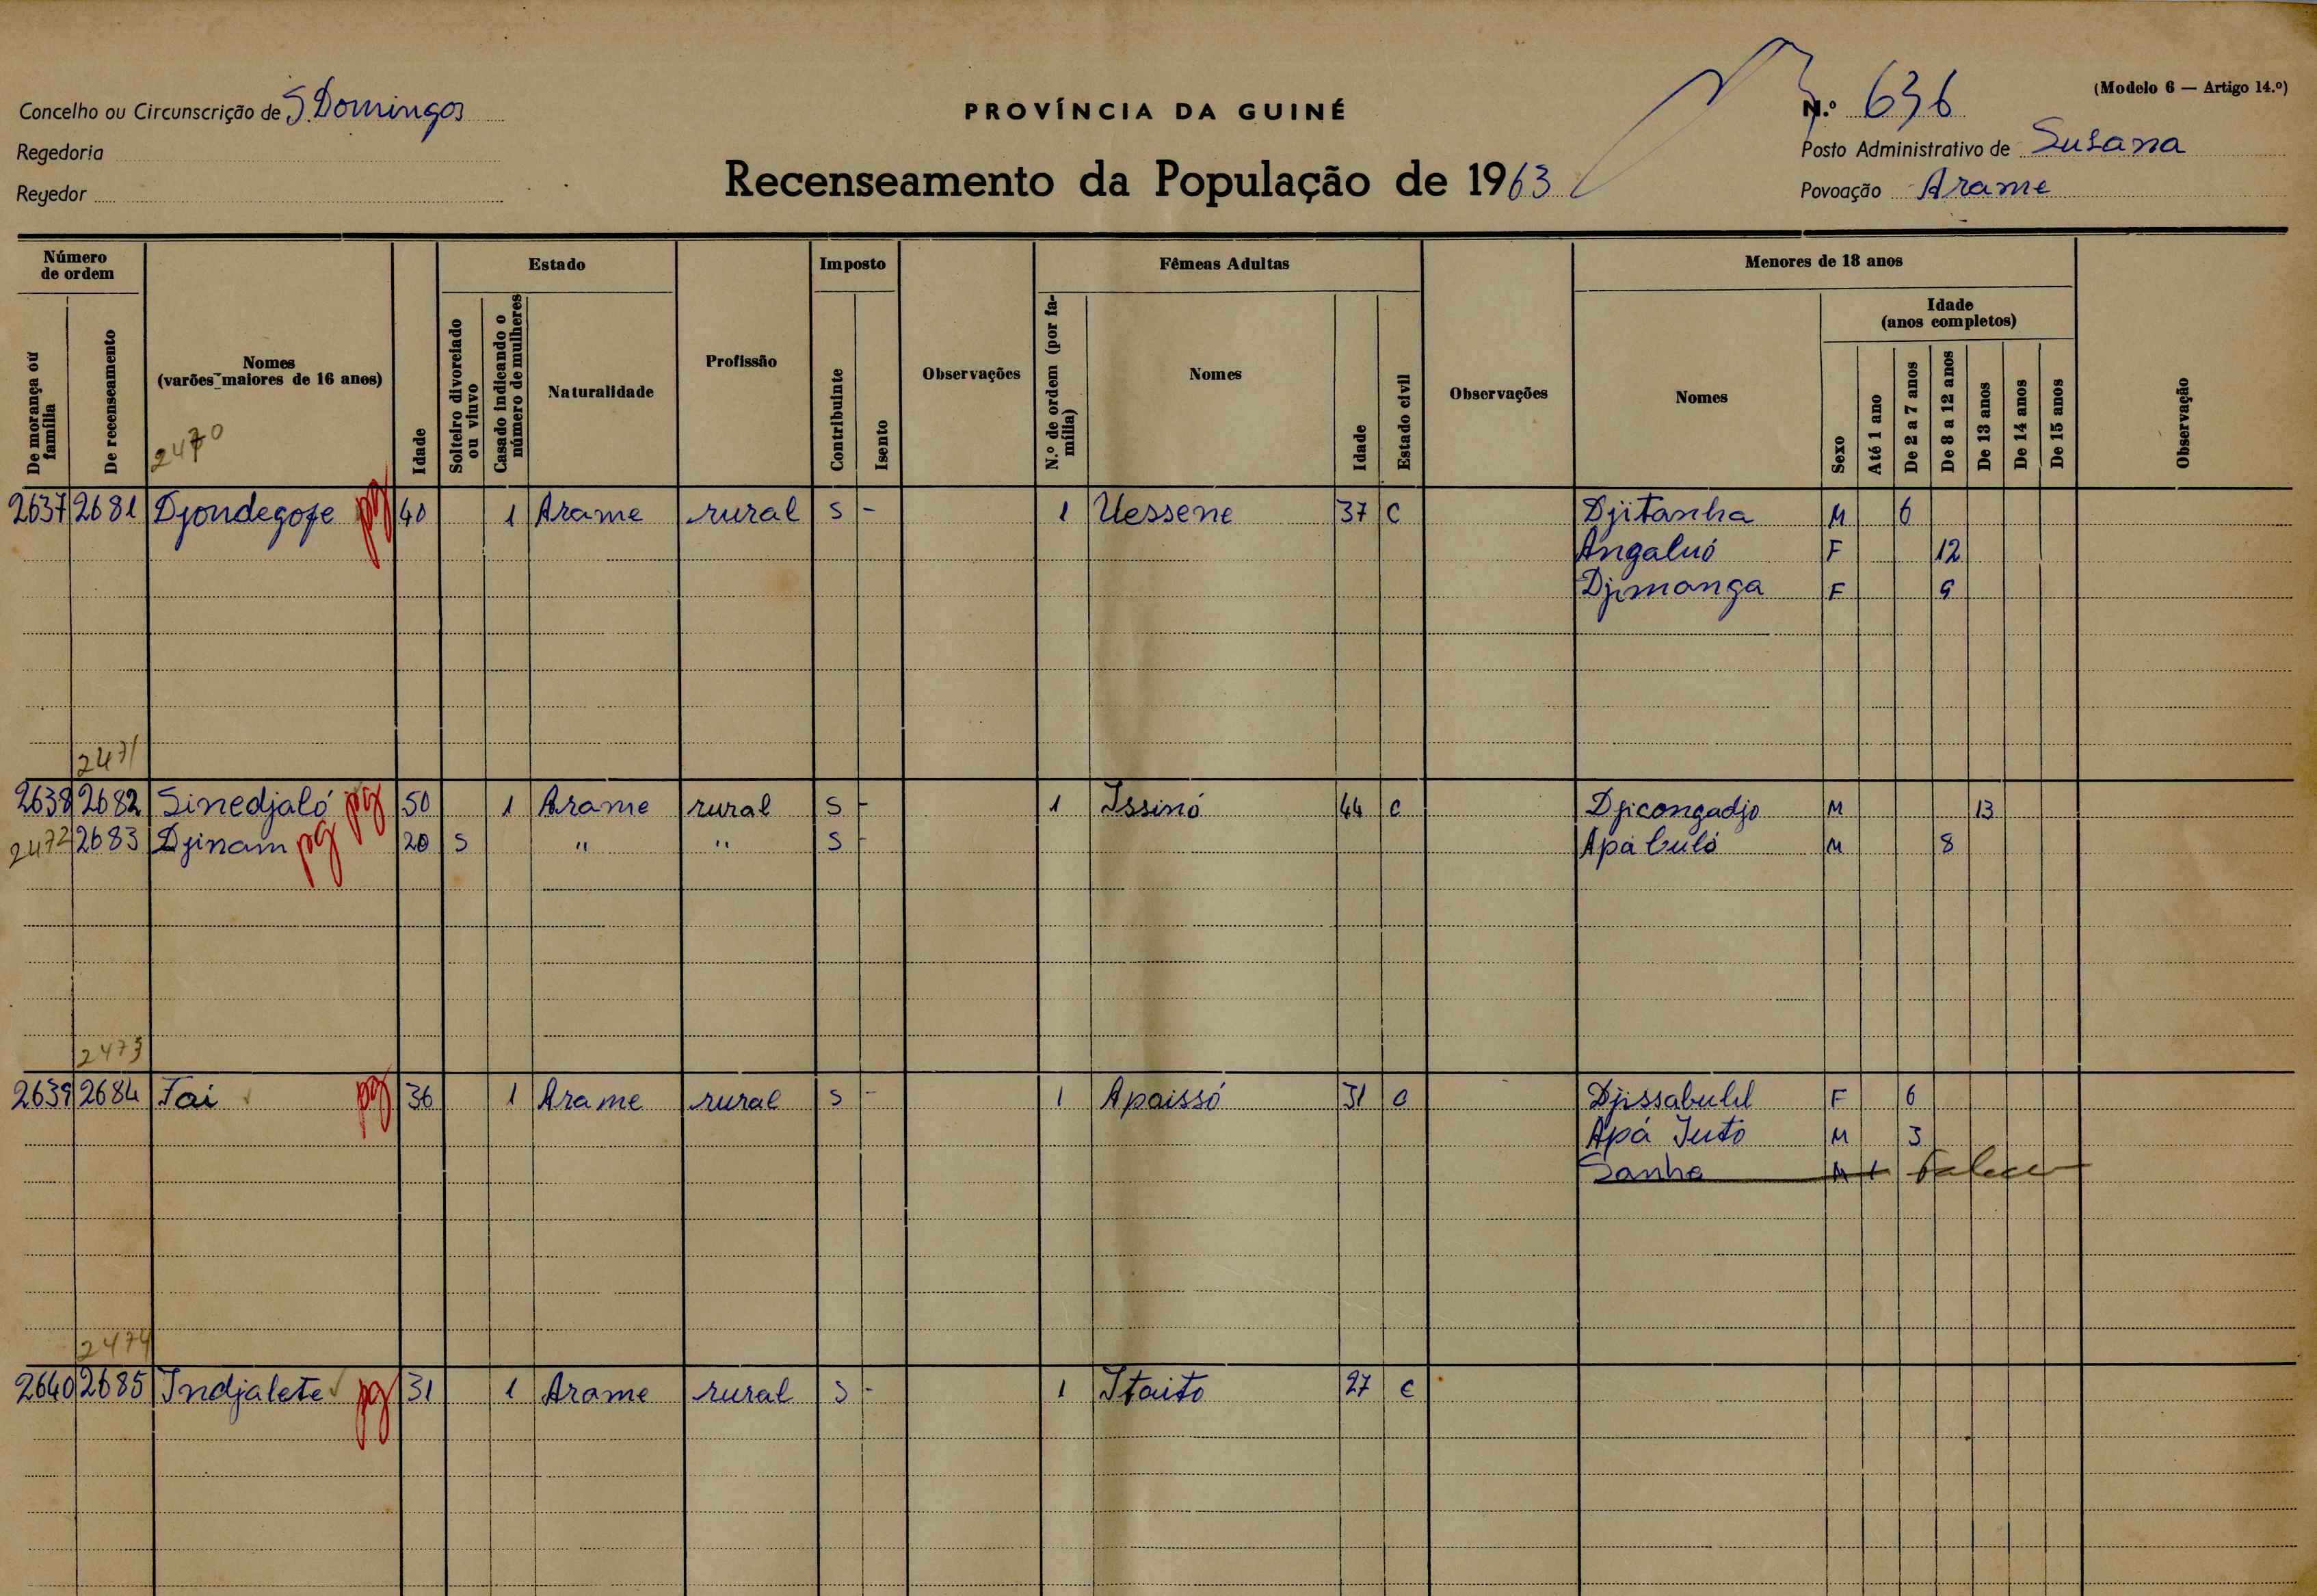 (Modelo 6 — Artigo 14.º)
Concelho ou Circunscrição de S. Domingos
PROVÍNCIA DA GUINÉ
N.º 636
Regedoria
Posto Administrativo de Susana
Regedor
Recenseamento da População de 1963
Povoação Arame
Número de ordem
Estado
Imposto
Fêmeas Adultas
Menores de 18 anos
De morança ou família
De recenseamento
Nomes
(varões maiores de 16 anos)
Idade
Solteiro divorciado ou viuvo
Casado indicando o número de mulheres
Naturalidade
Profissão
Contribuinte
Isento
Observações
N.º de ordem (por família)
Nomes
Idade
Estado civil
Observações
Nomes
Sexo
Idade
(anos completos)
Até 1 ano
De 2 a 7 anos
De 8 a 12 anos
De 13 anos
De 14 anos
De 15 anos
Observação
2470
2637 2681 Djondegofe pg 40 1 Arame rural S - 1 Uessene 37 C Djitanha M 6
Angaluó F 12
Djimanga F 9
2471
2638 2682 Sinedjaló pg 50 1 Arame rural S - 1 Issinó 44 C Djicongadjo M 13
2472 2683 Djinam pg 20 S " " S - Apabuló M 8
2473
2639 2684 Tai pg 36 1 Arame rural S - 1 Apaissó 31 C Djissabulel F 6
Apá Juto M 3
Sanha M 1 Falece
2474
2640 2685 Indjalete pg 31 1 Arame rural S - 1 Itaito 27 C